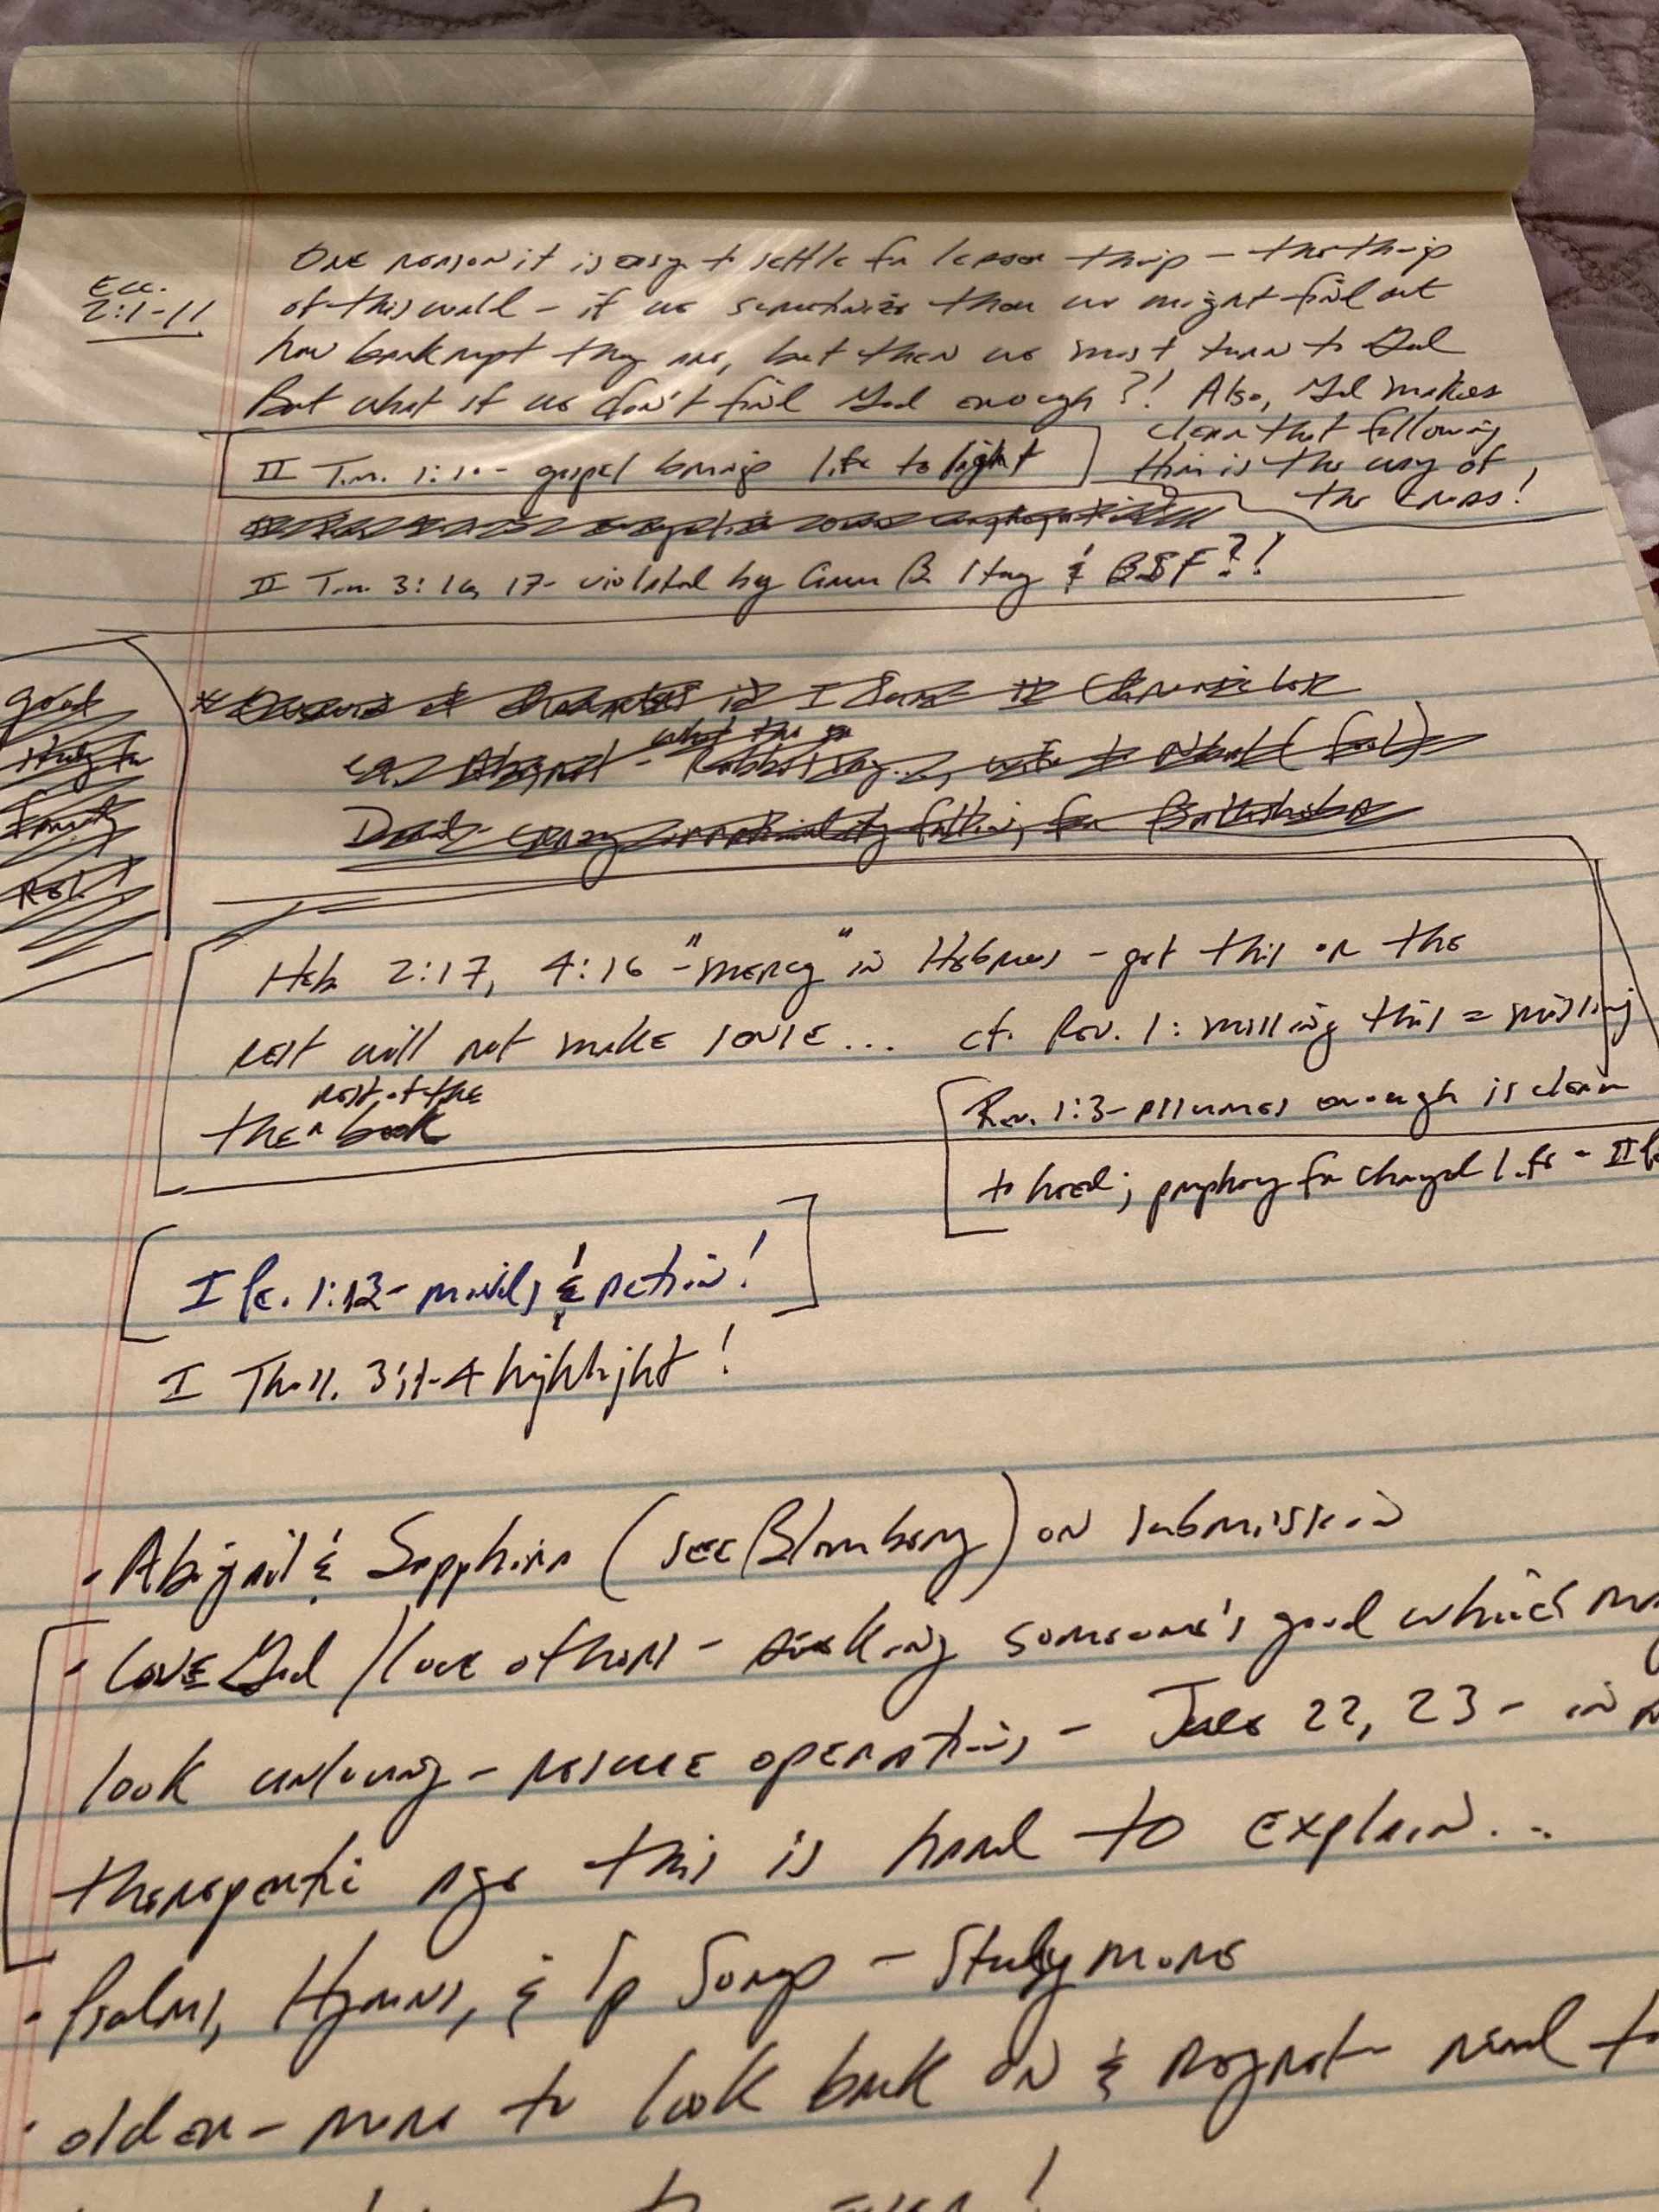 Ecc.
2:1-11
One reason it is easy to settle for lesser things - the things
of this world - if we scrutinize them we might find out
how bankrupt they are, but then we must turn to God
But what if we don't find God enough?! Also, God makes
clear that following
Him is the way of
the cross!
II Tim. 1:10 - gospel brings life to light
II Tim. 3:16, 17 - violated by & BSF?!
good
study for
* I Sam
Abigail - wife to Nabal (fool)
what the
David - crazy irrationality falling for Bathsheba
Heb. 2:17, 4:16 - "mercy" in Hebrews - get this or the
rest will not make sense... cf. Rev. 1: missing this = missing
rest of the
the book
Rev. 1:3 - assumes enough is clear
to heed; prophecy for changed life - II
I Pe. 1:13 - minds & action!
I Thess. 3:1-4 highlight!
· Abigail & Sapphira (see Blomberg) on submission
· Love God / love others - seeking someone's good which
look unloving - rescue operation, - Jude 22, 23 - in
therapeutic age this is hard to explain...
· Psalms, Hymns, & Sp Songs - Study more
· older - more to look back on & regret - need to